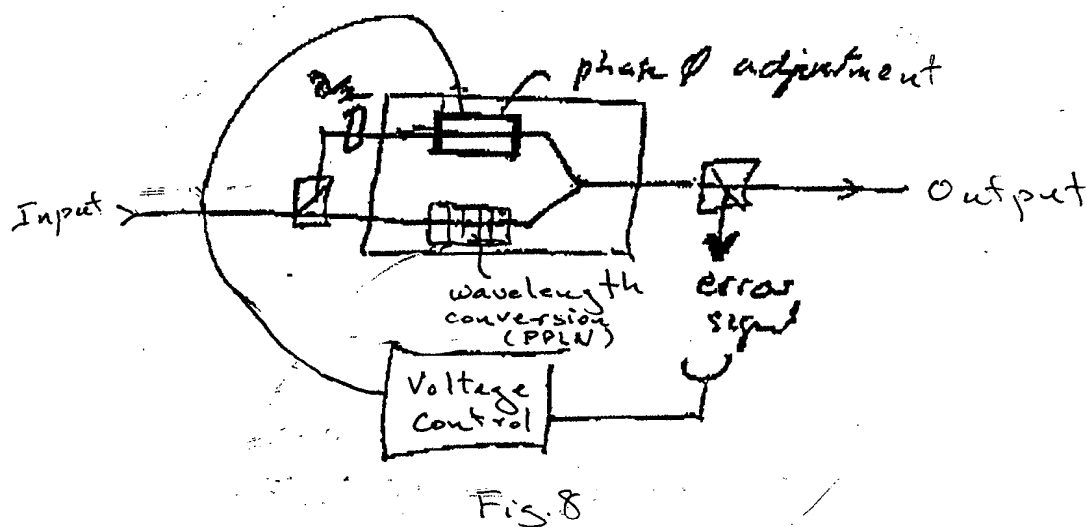 phase ϕ adjustment
Input
Output
wavelength
conversion
(PPLN)
error
signal
Voltage
Control
Fig. 8